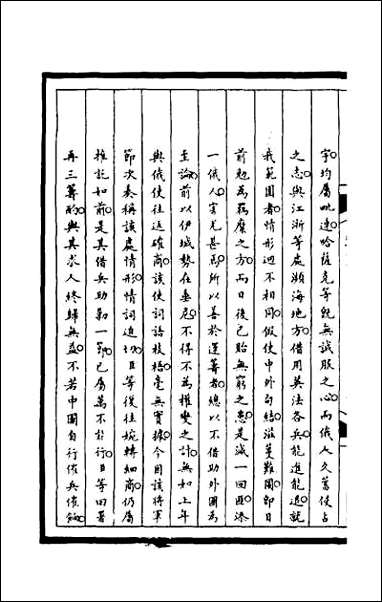 字均屬毗連哈薩克等既無誠服之心而俄人久蓄侵占
之志與江浙等處瀕海地方借用英法各兵能進能退就
我範圍者情形迥不相同假使中外勾結滋蔓難圖即日
前勉為羈縻之方而日後已貽無窮之患是滅一回匪添
一俄人害尤甚焉所以善於運籌者總以不借助外國為
至論前以伊城勢在垂危不得不為權變之計無如上年
與俄使往返確商該使詞語枝梧毫無實據今因該將軍
節次奏稱該處情形情詞迫切臣等復往婉轉細商仍屬
推託如前是其借兵助勦一節已屬萬不能行臣等回署
再三籌酌與其求人終歸無益不若中國自行備兵備餉